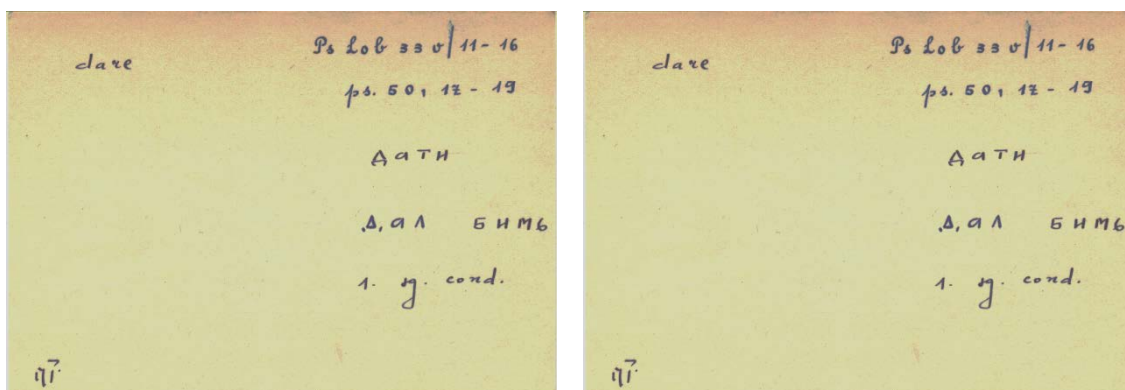 dare
Ps Lob 33 v/11-16
ps. 50, 17-19
дати
дал бимь
1. sg. cond.
dare
Ps Lob 33 v/11-16
ps. 50, 17-19
дати
дал бимь
1. sg. cond.